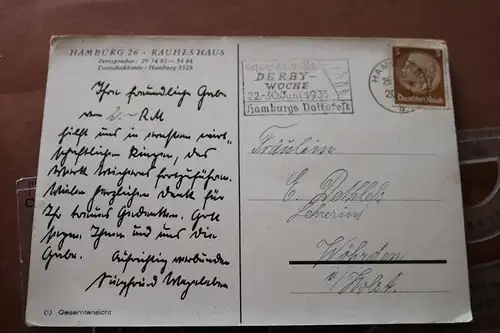 HAMBURG 26 · RAUHES HAUS
Fernsprecher: 29 34 81 — 34 84
Postscheckkonto: Hamburg 3328
Ihre freundliche Gabe
von 2.- RM
hilft uns in unserem wirt-
schaftlichen Ringen, das
Werk Wicherns fortzuführen.
Vielen herzlichen Dank für
Ihr treues Gedenken. Gott
segne Ihnen und uns die
Gabe.
Aufrichtig verbunden
Siegfried Wegeleben
(1) Gesamtansicht
DERBY-
WOCHE
22.-30. Juni 1935
Hamburgs Volksfest
HAMB
3
Deutsches Reich
Fräulein
E. Dethlefs
Lehrerin
Wöhrden
i/Holst.